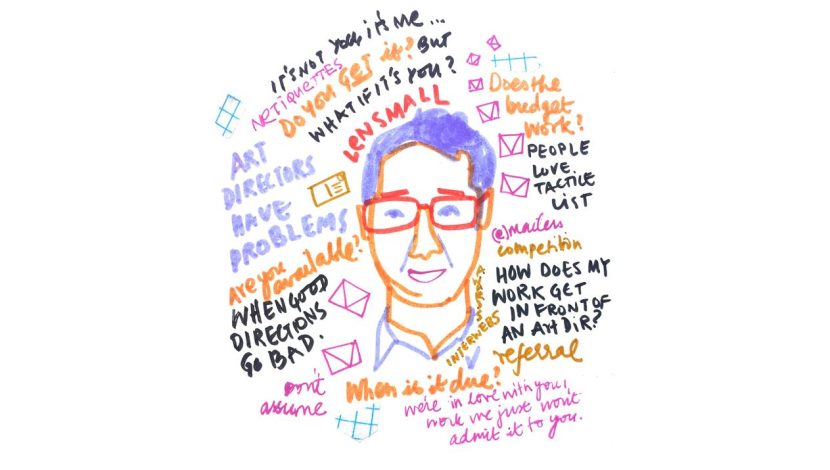 IT'S NOT YOU, it's ME...
NETIQUETTES
DO YOU GET it? BUT
WHAT IF IT'S YOU?
LEN SMALL
ART
DIRECTORS
HAVE
PROBLEMS
Are you
available?
WHEN GOOD
DIRECTIONS
GO BAD.
Don't
assume
Does the
budget
work?
PEOPLE
LOVE.
TACTILE
LIST
@mailers
competition
AWARDS
INTERVIEWS
HOW DOES MY
WORK GET
IN FRONT OF
AN Art DIR?
referral
When is it due?
we're in love with you,
work we just won't
admit it to you.